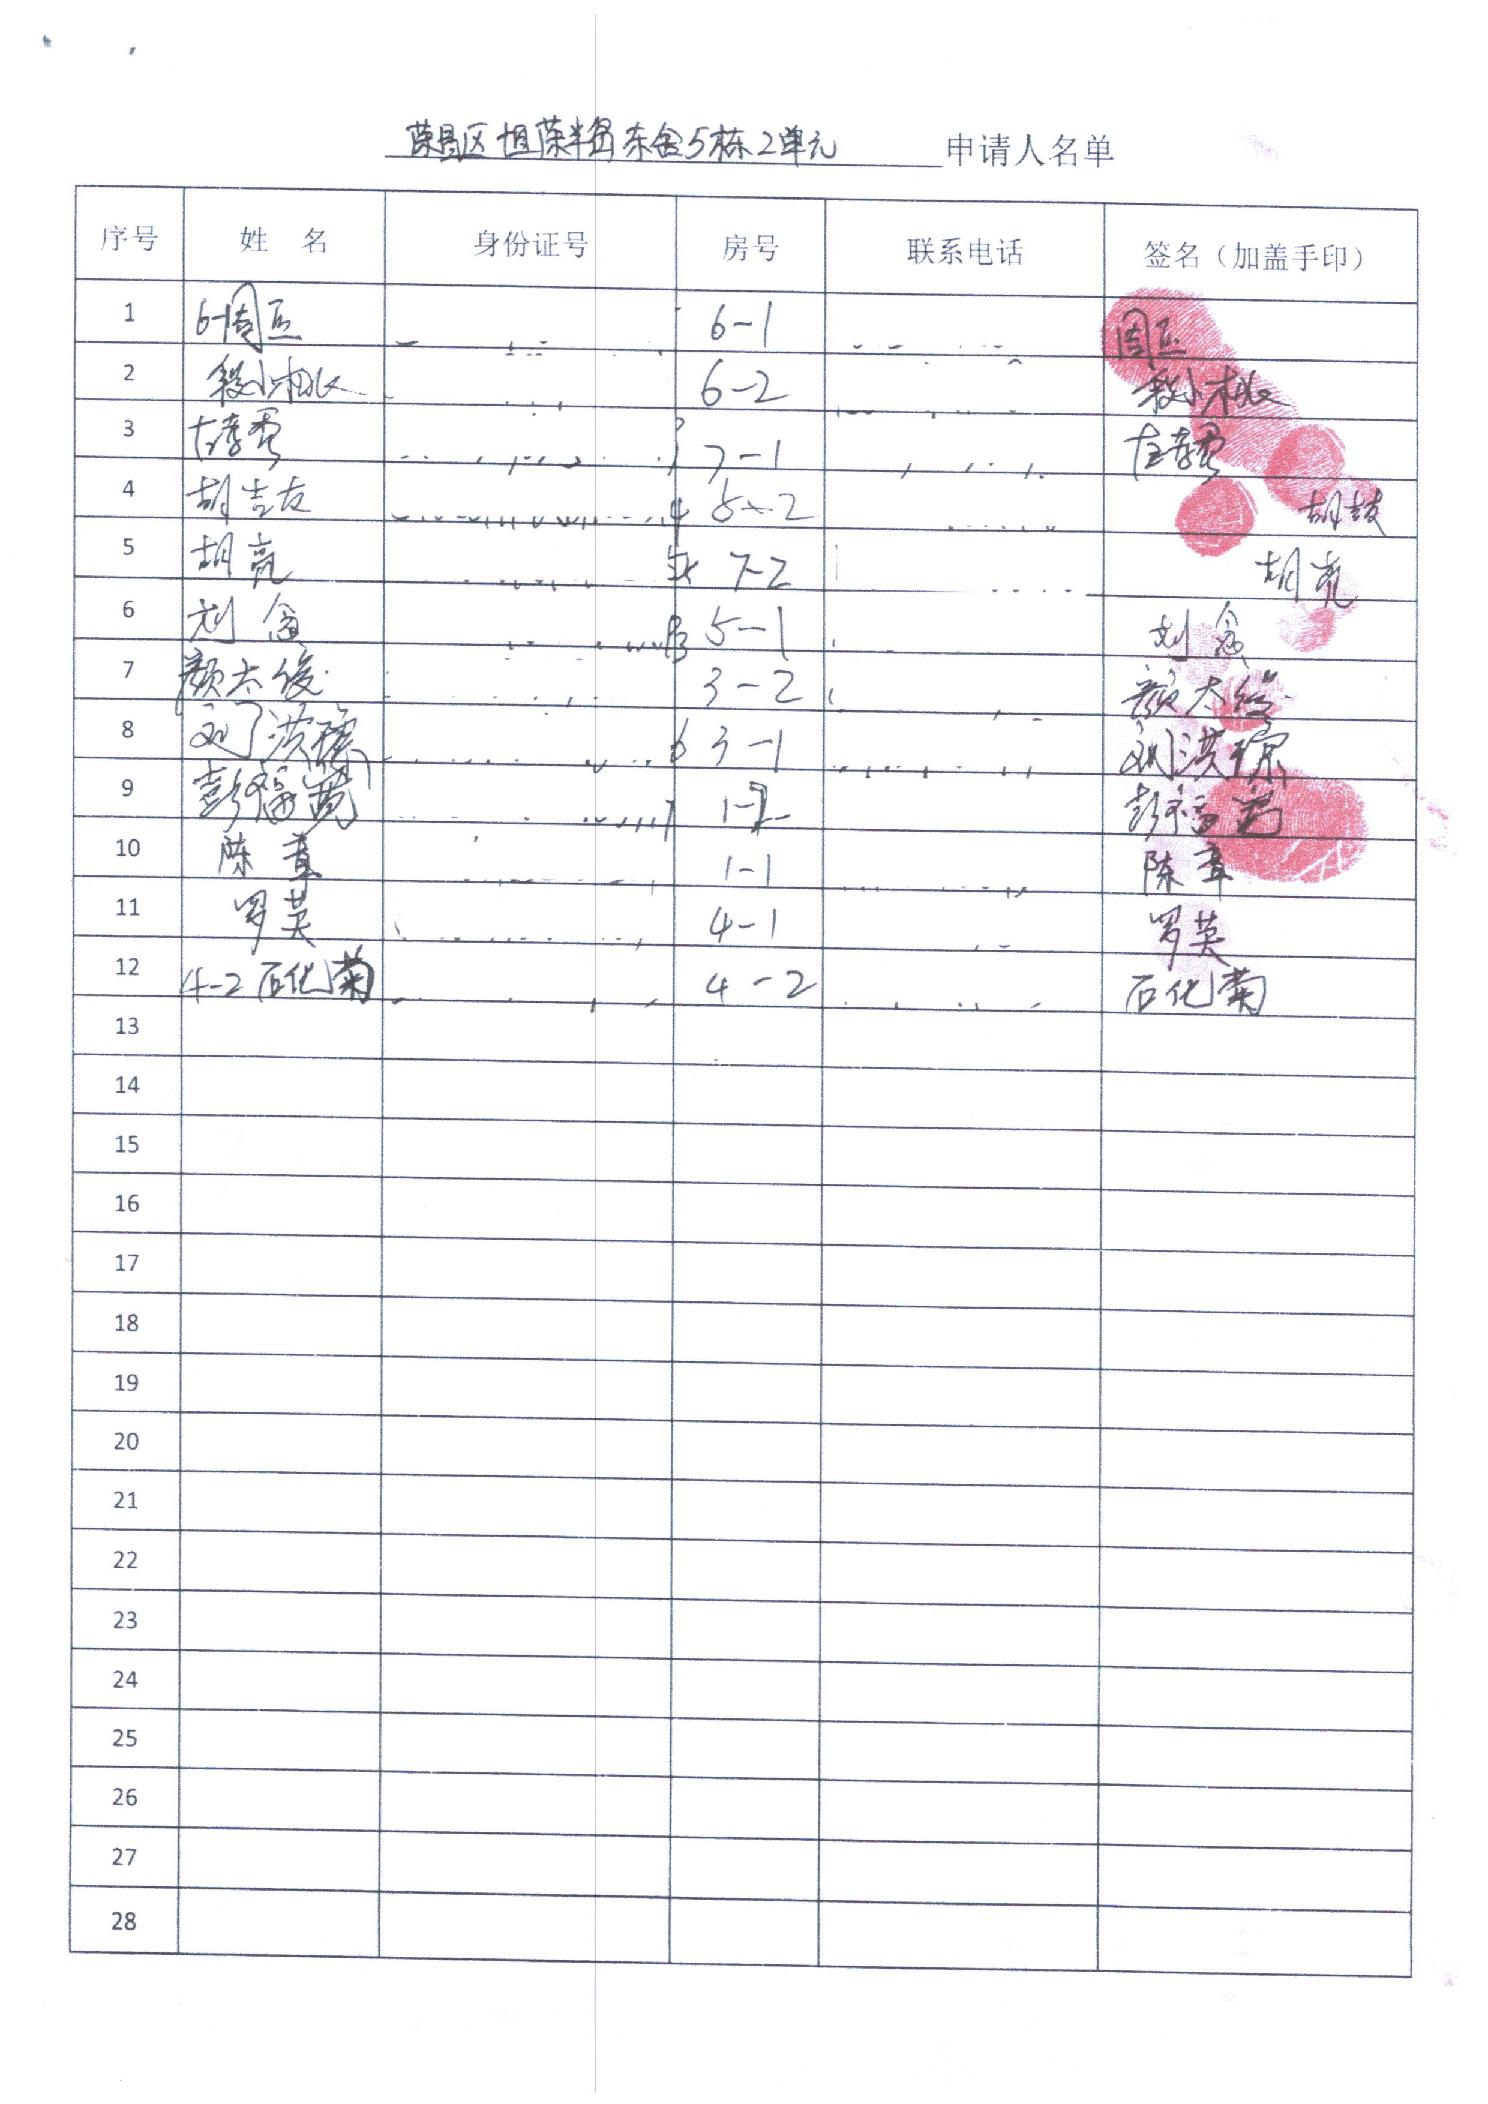 荣昌区坦荣半岛东舍5栋2单元 申请人名单
序号 姓 名 身份证号 房号 联系电话 签名（加盖手印）
1 6-1周 6-1 周
2 段小 6-2 段小
3 左孝 7-1 左孝
4 胡吉友 5-2 胡吉友
5 胡亮 7-2 胡亮
6 刘念 5-1 刘念
7 颜太俊 3-2 颜太俊
8 刘洪琼 3-1 刘洪琼
9 彭福 1-2 彭福
10 陈章 1-1 陈章
11 罗英 4-1 罗英
12 4-2石化菊 4-2 石化菊
13
14
15
16
17
18
19
20
21
22
23
24
25
26
27
28